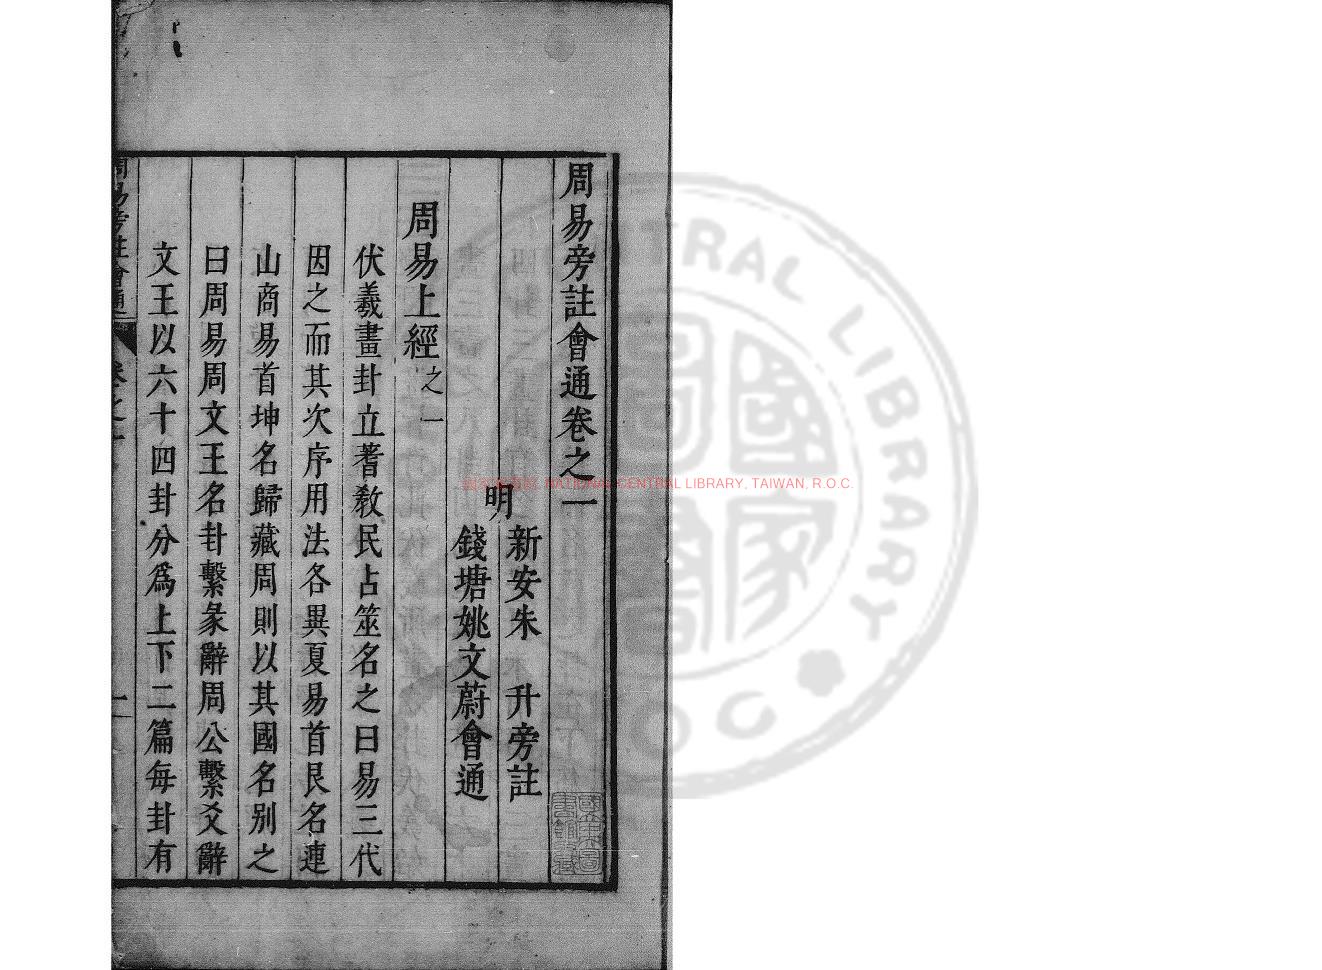 周易旁註會通卷之一
明
新安朱　升旁註
錢塘姚文蔚會通
周易上經之一
伏羲畫卦立蓍教民占筮名之曰易三代
因之而其次序用法各異夏易首艮名連
山商易首坤名歸藏周則以其國名別之
曰周易周文王名卦繫彖辭周公繫爻辭
文王以六十四卦分爲上下二篇每卦有
周易旁註會通
卷之一
一
國立中央圖書館收藏
NATIONAL CENTRAL LIBRARY, TAIWAN, R.O.C.
CENTRAL LIBRARY